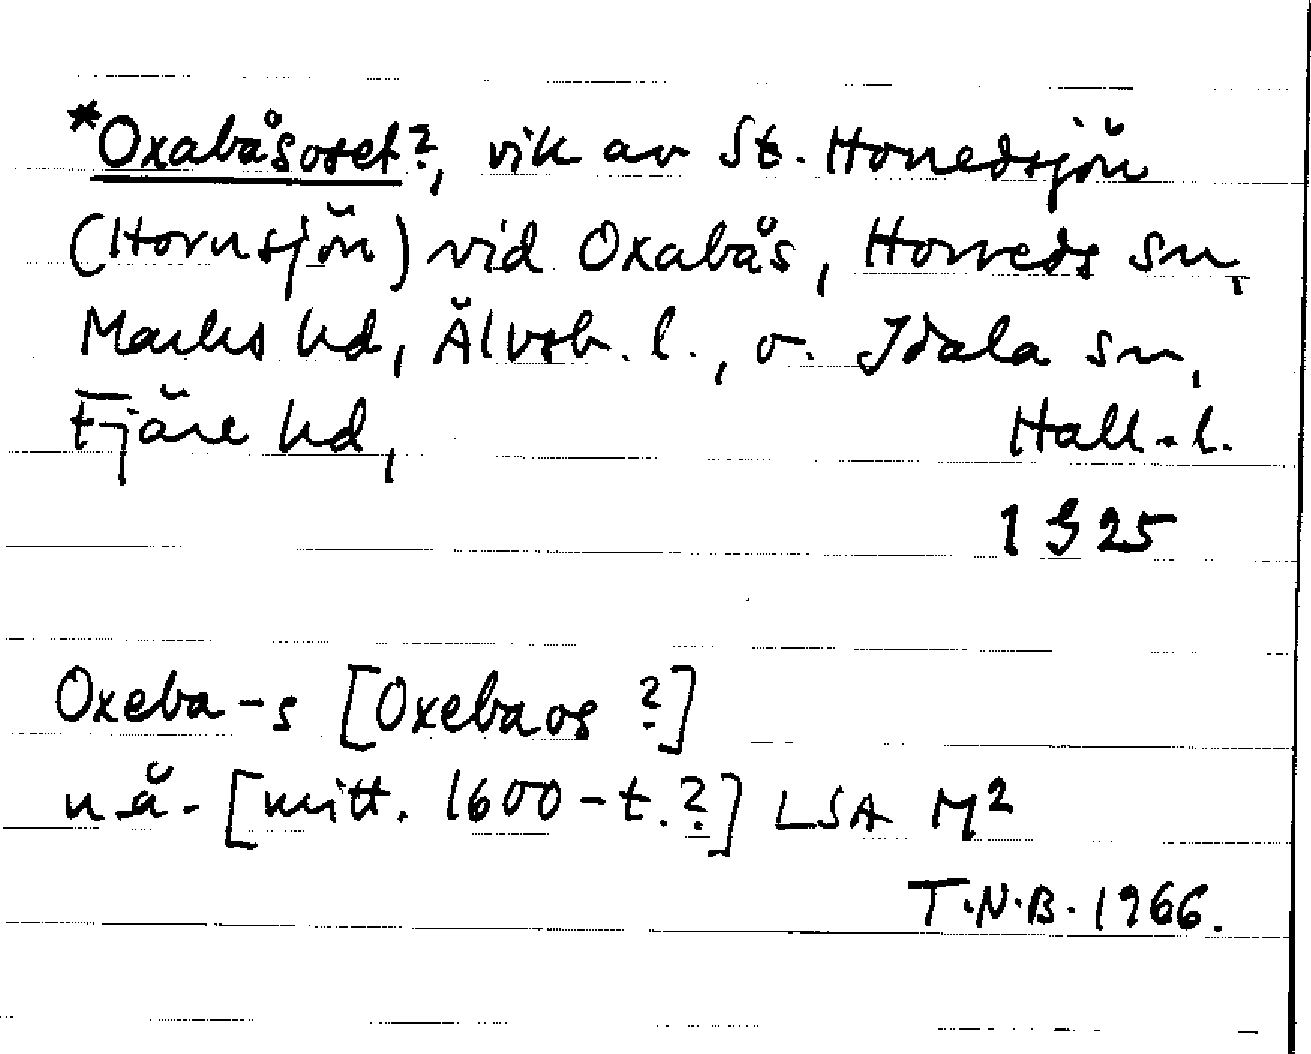 *Oxabåsoset?, vik av St. Horredsjön
(Hornsjön) vid Oxabås, Horreds sn,
Marks hd, Älvsb. l., o. Idala sn,
Fjäre hd, Hall. l.
1925
Oxeba-s [Oxebaos ?]
u.å. [mitt. 1600-t.?] LSA M2
T.N.B. 1966.